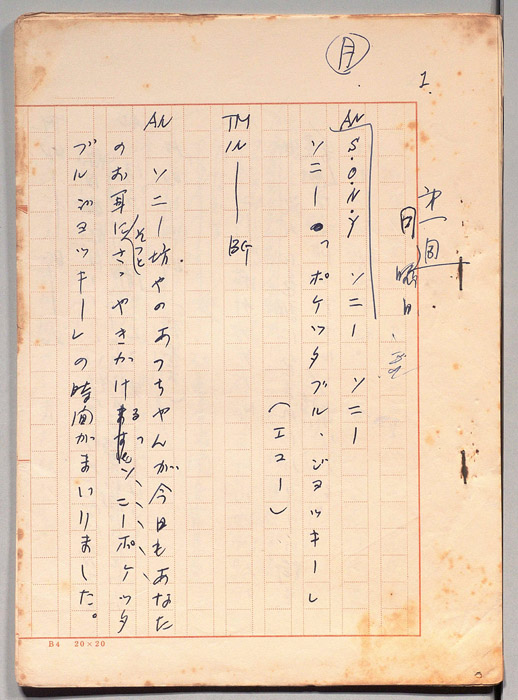 月
1.
第一回
日曜日
AN S・O・N・Y ソニー ソニー
ソニーのっポケッタブル、ジョッキーし
(エコーし
TM IN ── BG
AN ソニー坊やのあっちゃんが今日もあなた
のお耳にそっとさゝやきかける「ソニーポケッタ
ブルジョッキー」の時間がまいりました。
B4 20×20